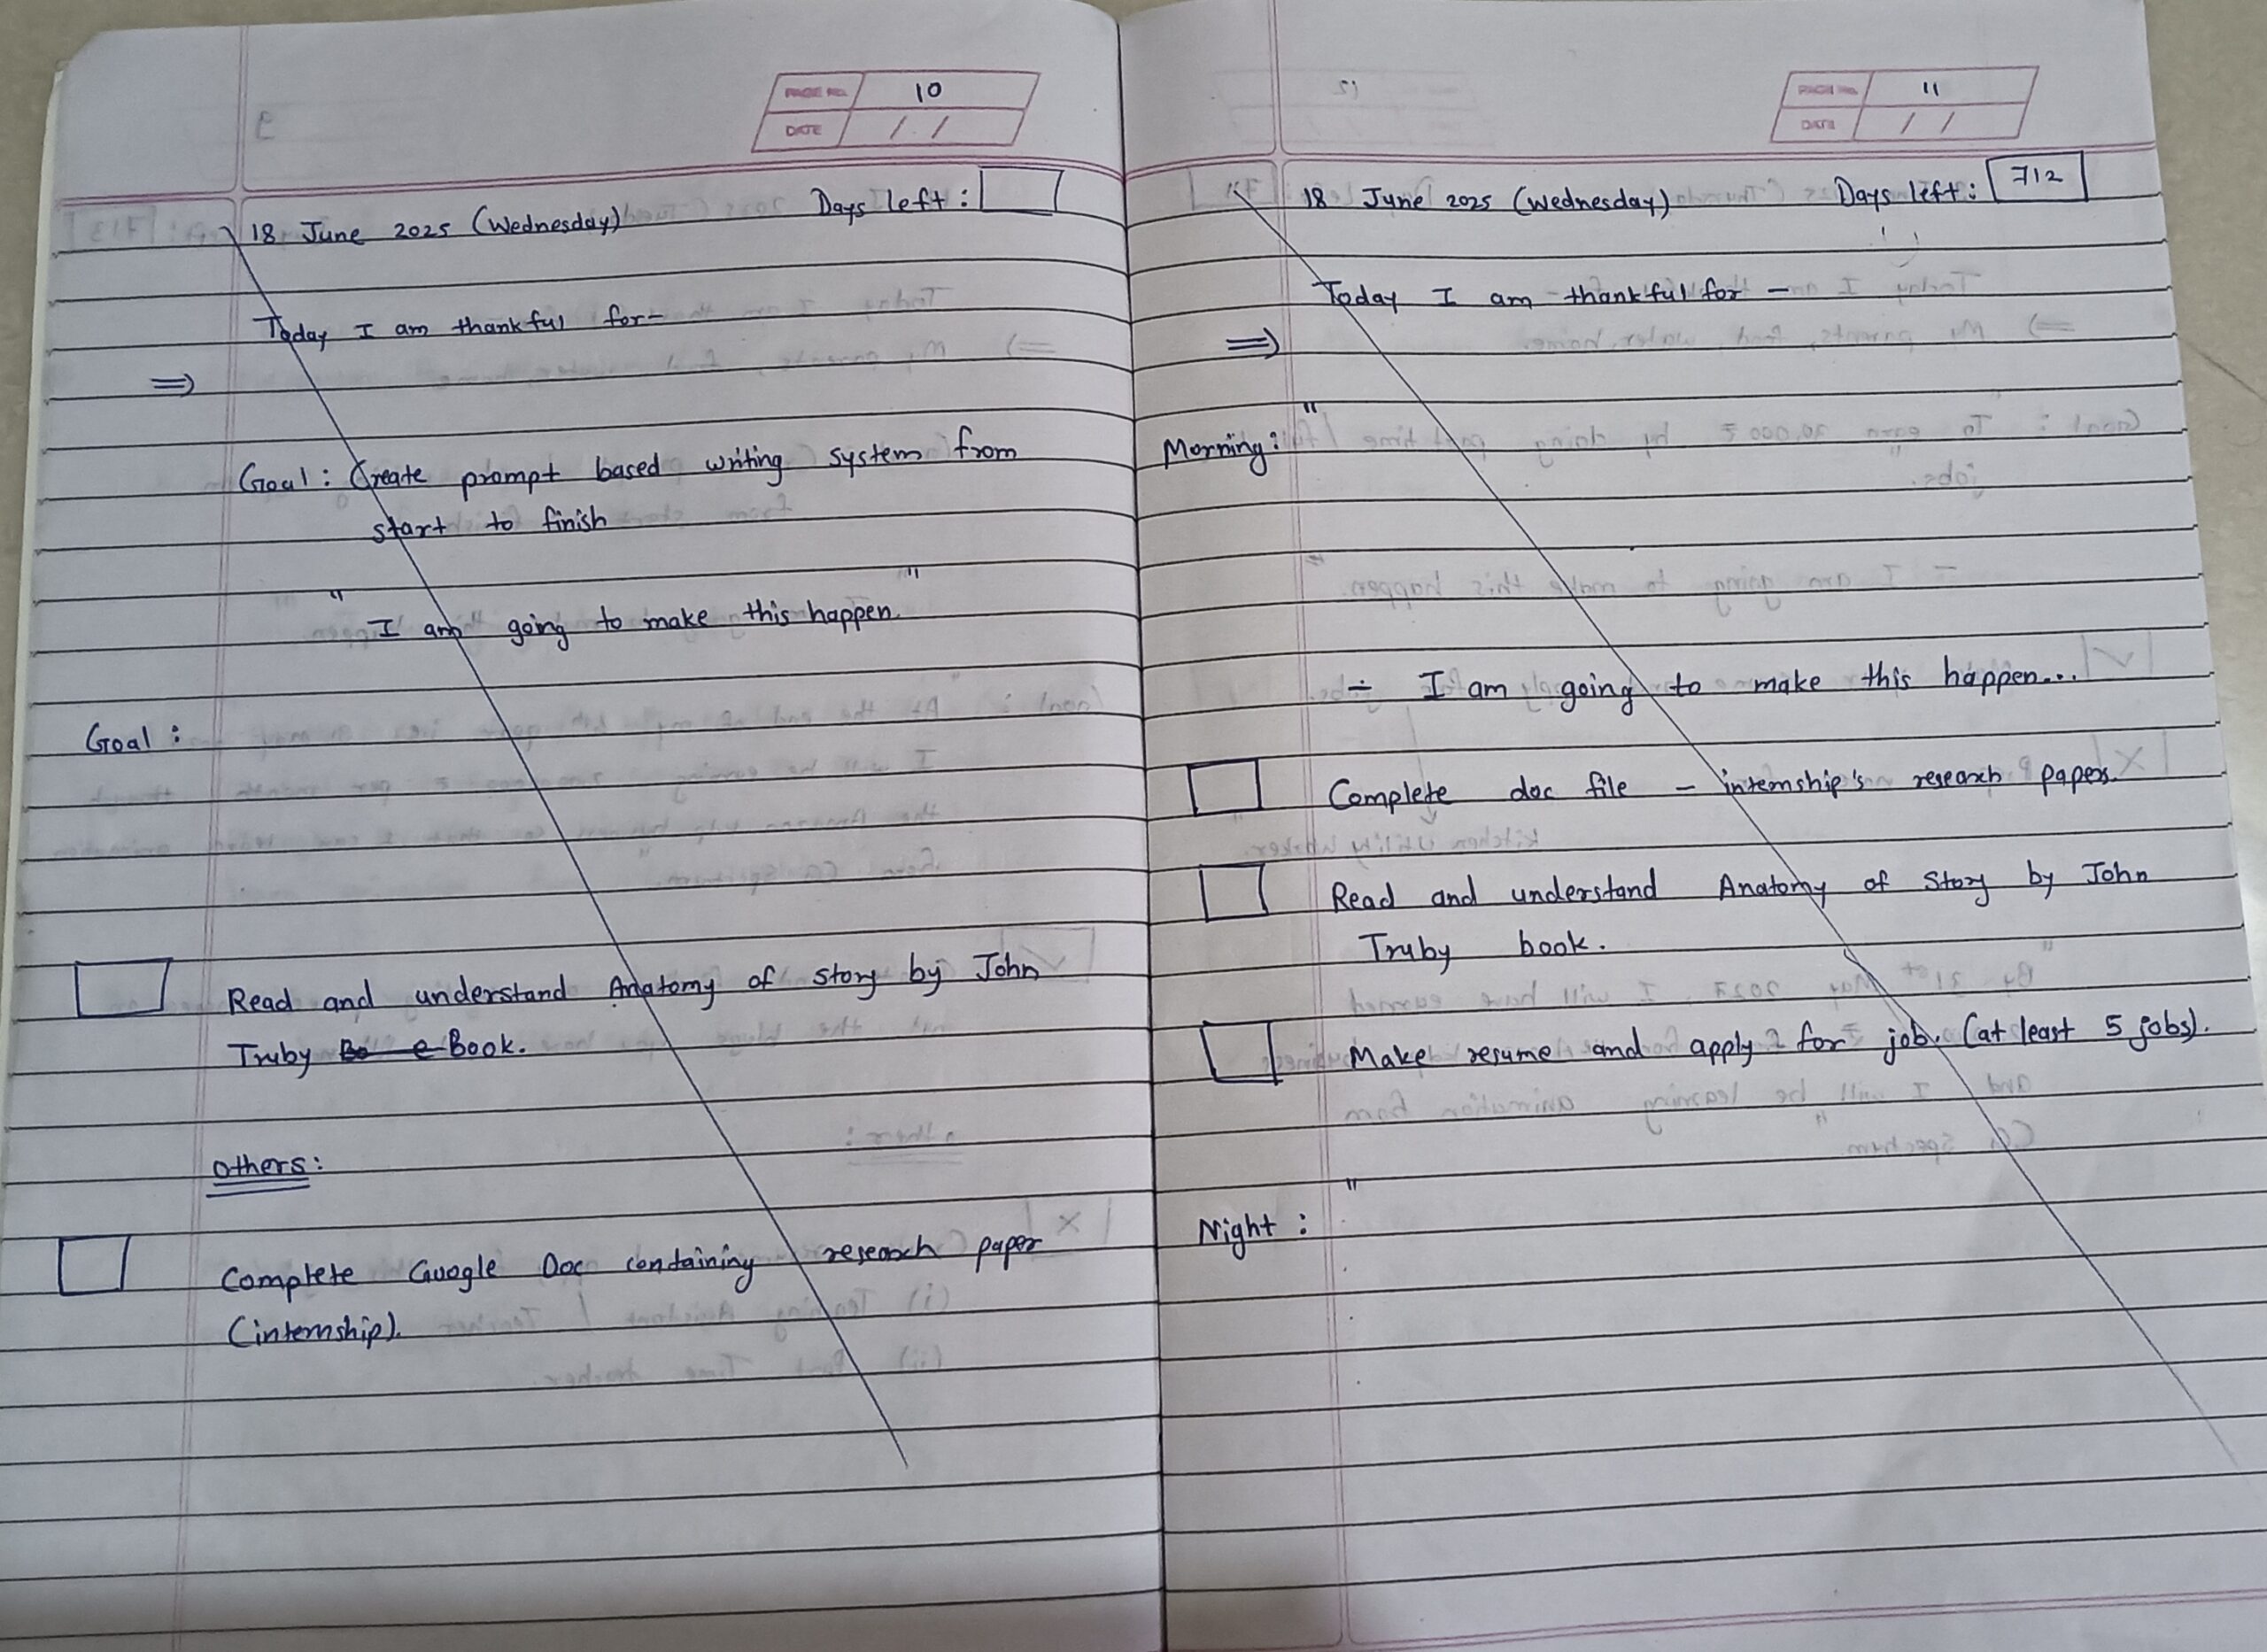 PAGE NO. 10
DATE / /
18 June 2025 (Wednesday) Days left :
Today I am thankful for-
⇒
Goal : Create prompt based writing system from
start to finish
" I am going to make this happen. "
Goal :
Read and understand Anatomy of story by John
Truby Bo e-Book.
Others:
Complete Google Doc containing research paper
(internship).
PAGE NO. 11
DATE / /
18 June 2025 (Wednesday) Days left : 712
Today I am thankful for —
⇒
Morning : "
I am going to make this happen...
Complete doc file – internship's research papers.
Read and understand Anatomy of Story by John
Truby book.
Make resume and apply for job. (at least 5 jobs).
Night : "